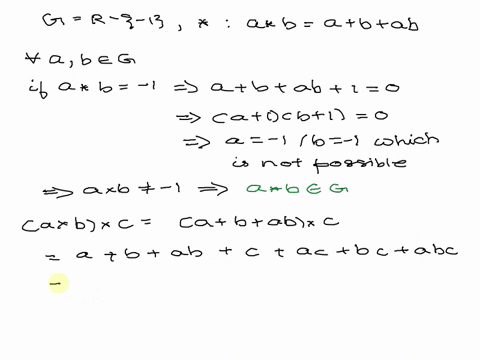 G = R - {-1}, * : a * b = a + b + ab
∀ a, b ∈ G
if a * b = -1 ⇒ a + b + ab + 1 = 0
⇒ (a+1)(b+1) = 0
⇒ a = -1 / b = -1 which
is not possible
⇒ a * b ≠ -1 ⇒ a * b ∈ G
(a * b) * c = (a + b + ab) * c
= a + b + ab + c + ac + bc + abc
=